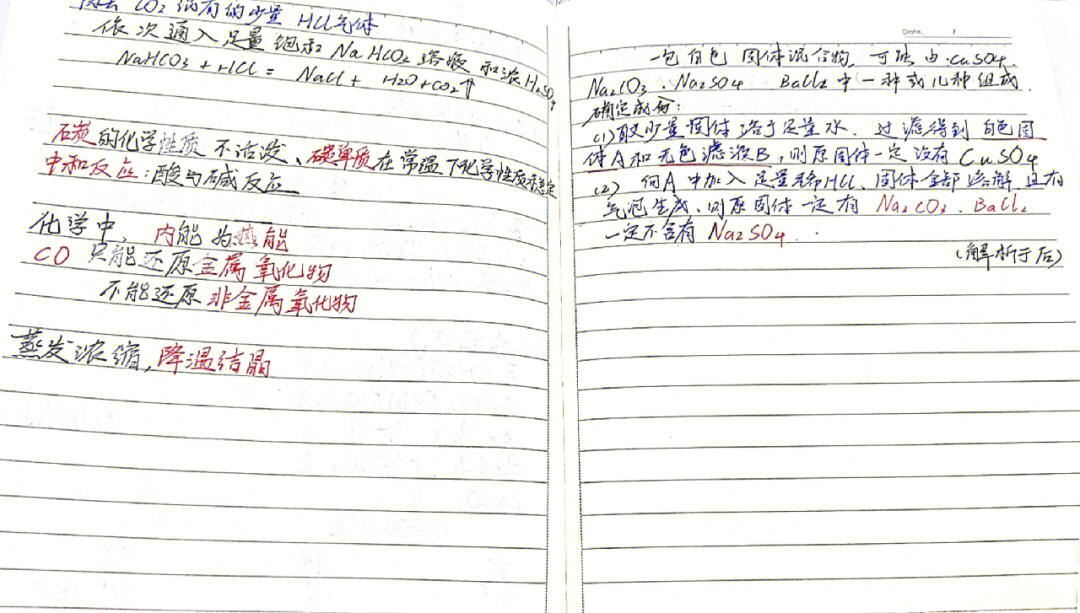 CO2 HCl气体
依次通入足量饱和NaHCO3溶液和浓H2SO4
NaHCO3 + HCl = NaCl + H2O + CO2↑
石炭的化学性质不活泼、碳单质在常温下化学性质稳定
中和反应:酸与碱反应
化学中,内能为热能
CO 只能还原金属氧化物
不能还原非金属氧化物
蒸发浓缩,降温结晶
Date. /
一包白色固体混合物,可能由CuSO4.
Na2CO3. Na2SO4 BaCl2中一种或几种组成.
确定成分:
(1)取少量固体溶于足量水. 过滤得到白色固
体A和无色滤液B,则原固体一定没有CuSO4
(2) 向A中加入足量稀HCl、固体全部溶解且有
气泡生成,则原固体一定有 Na2CO3. BaCl2
一定不含有 Na2SO4.
(解析于后)